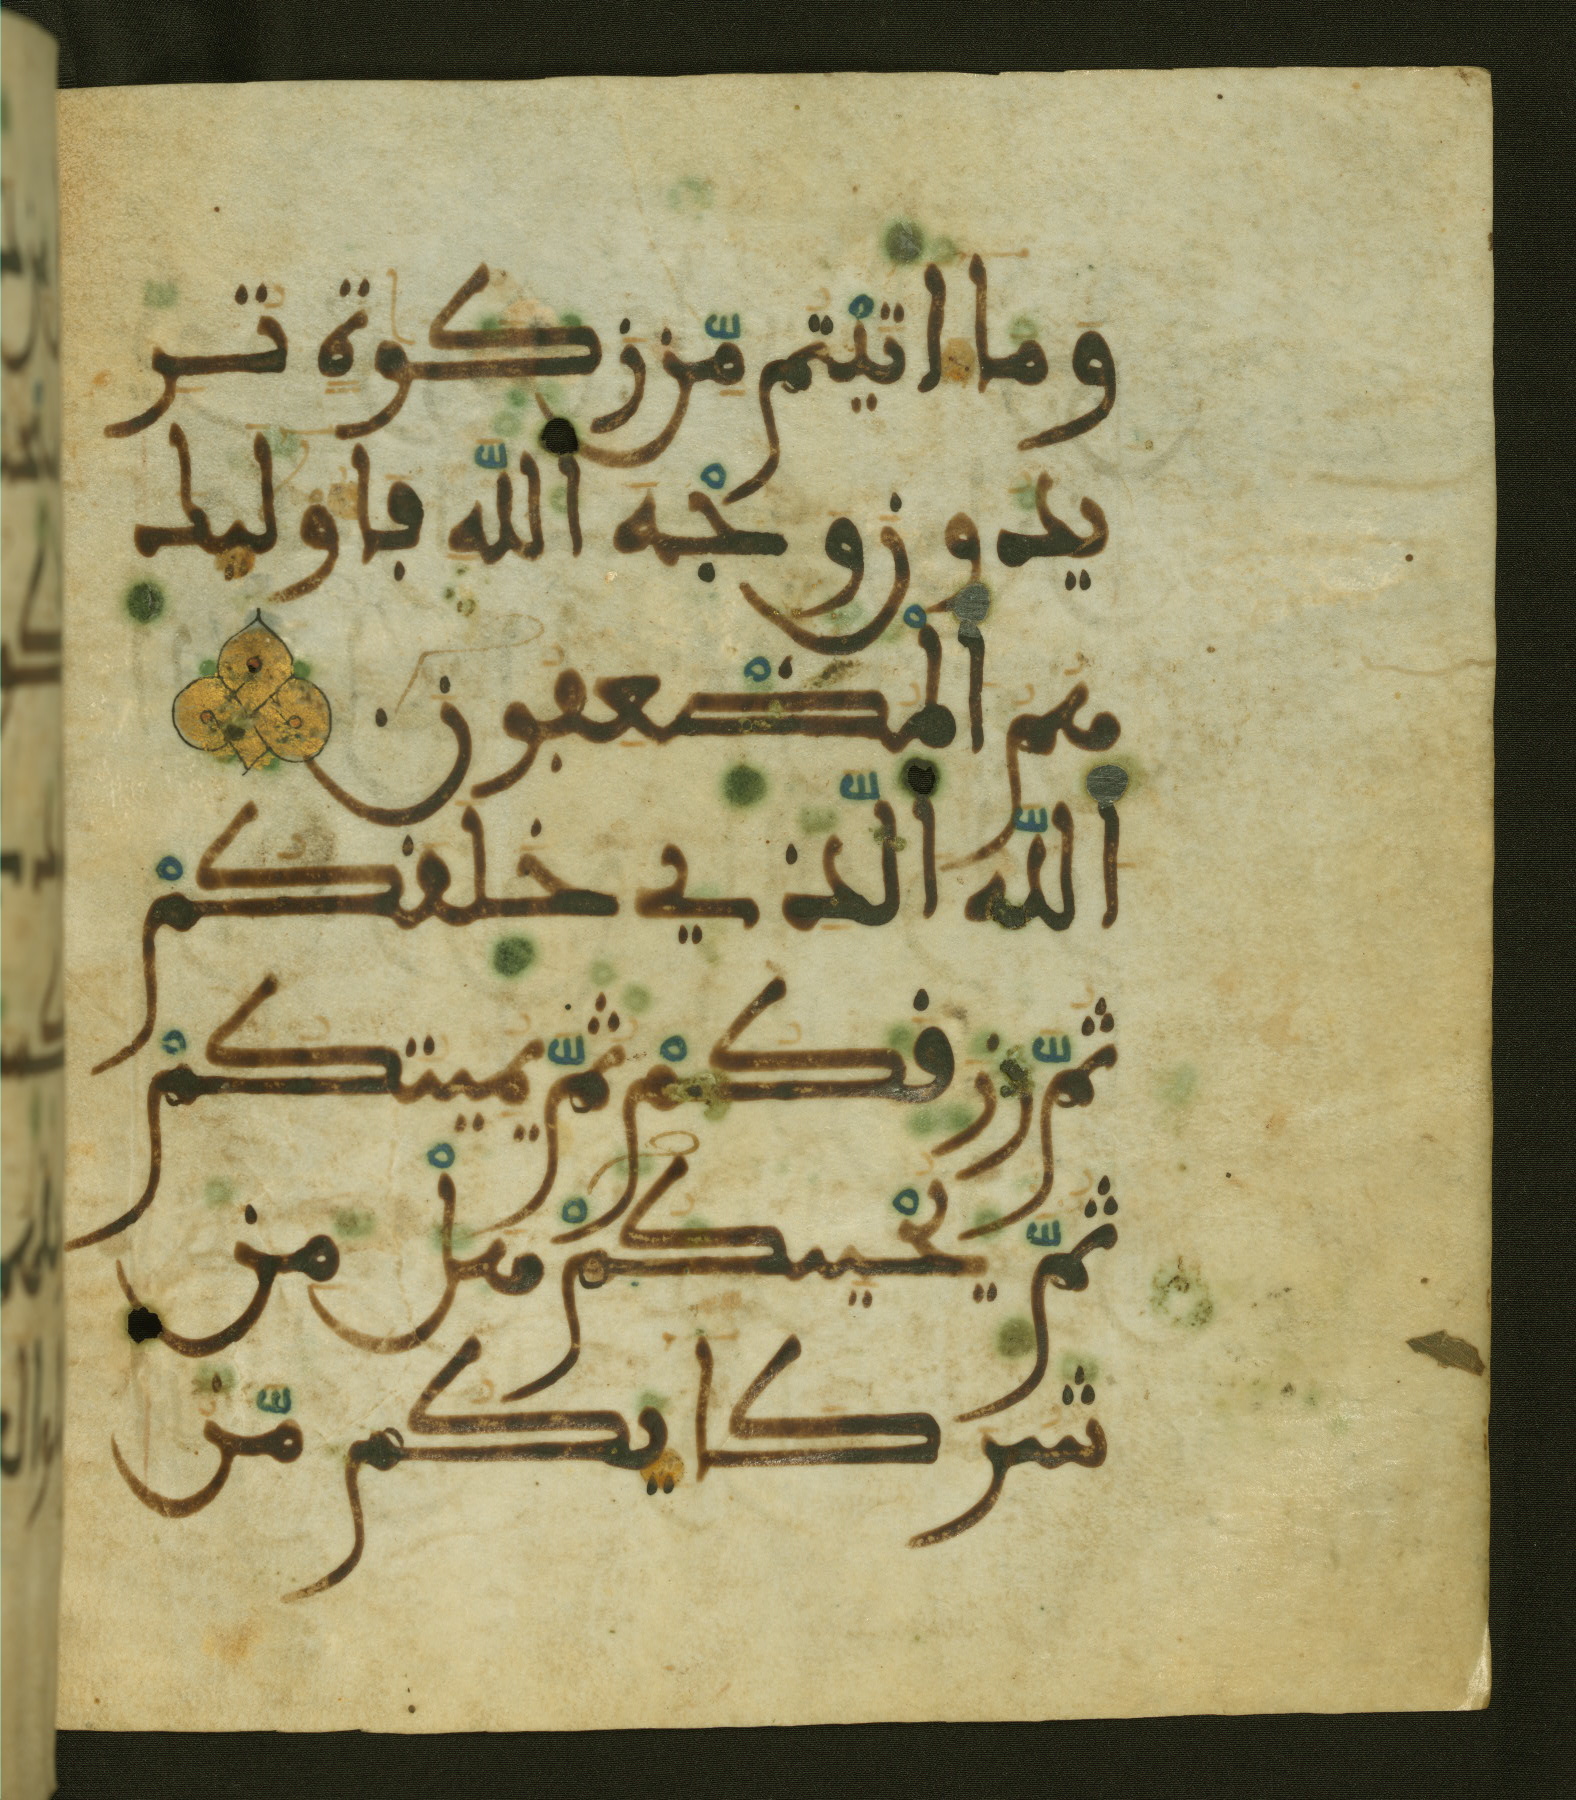 وما اتيتم مّن زكوة تر
يدون وجه اللّه فاوليك
هم المضعفون
اللّه الّذي خلقكم
ثمّ رزقكم ثمّ يميتكم
ثمّ يحييكم هل من
شركايكم مّن